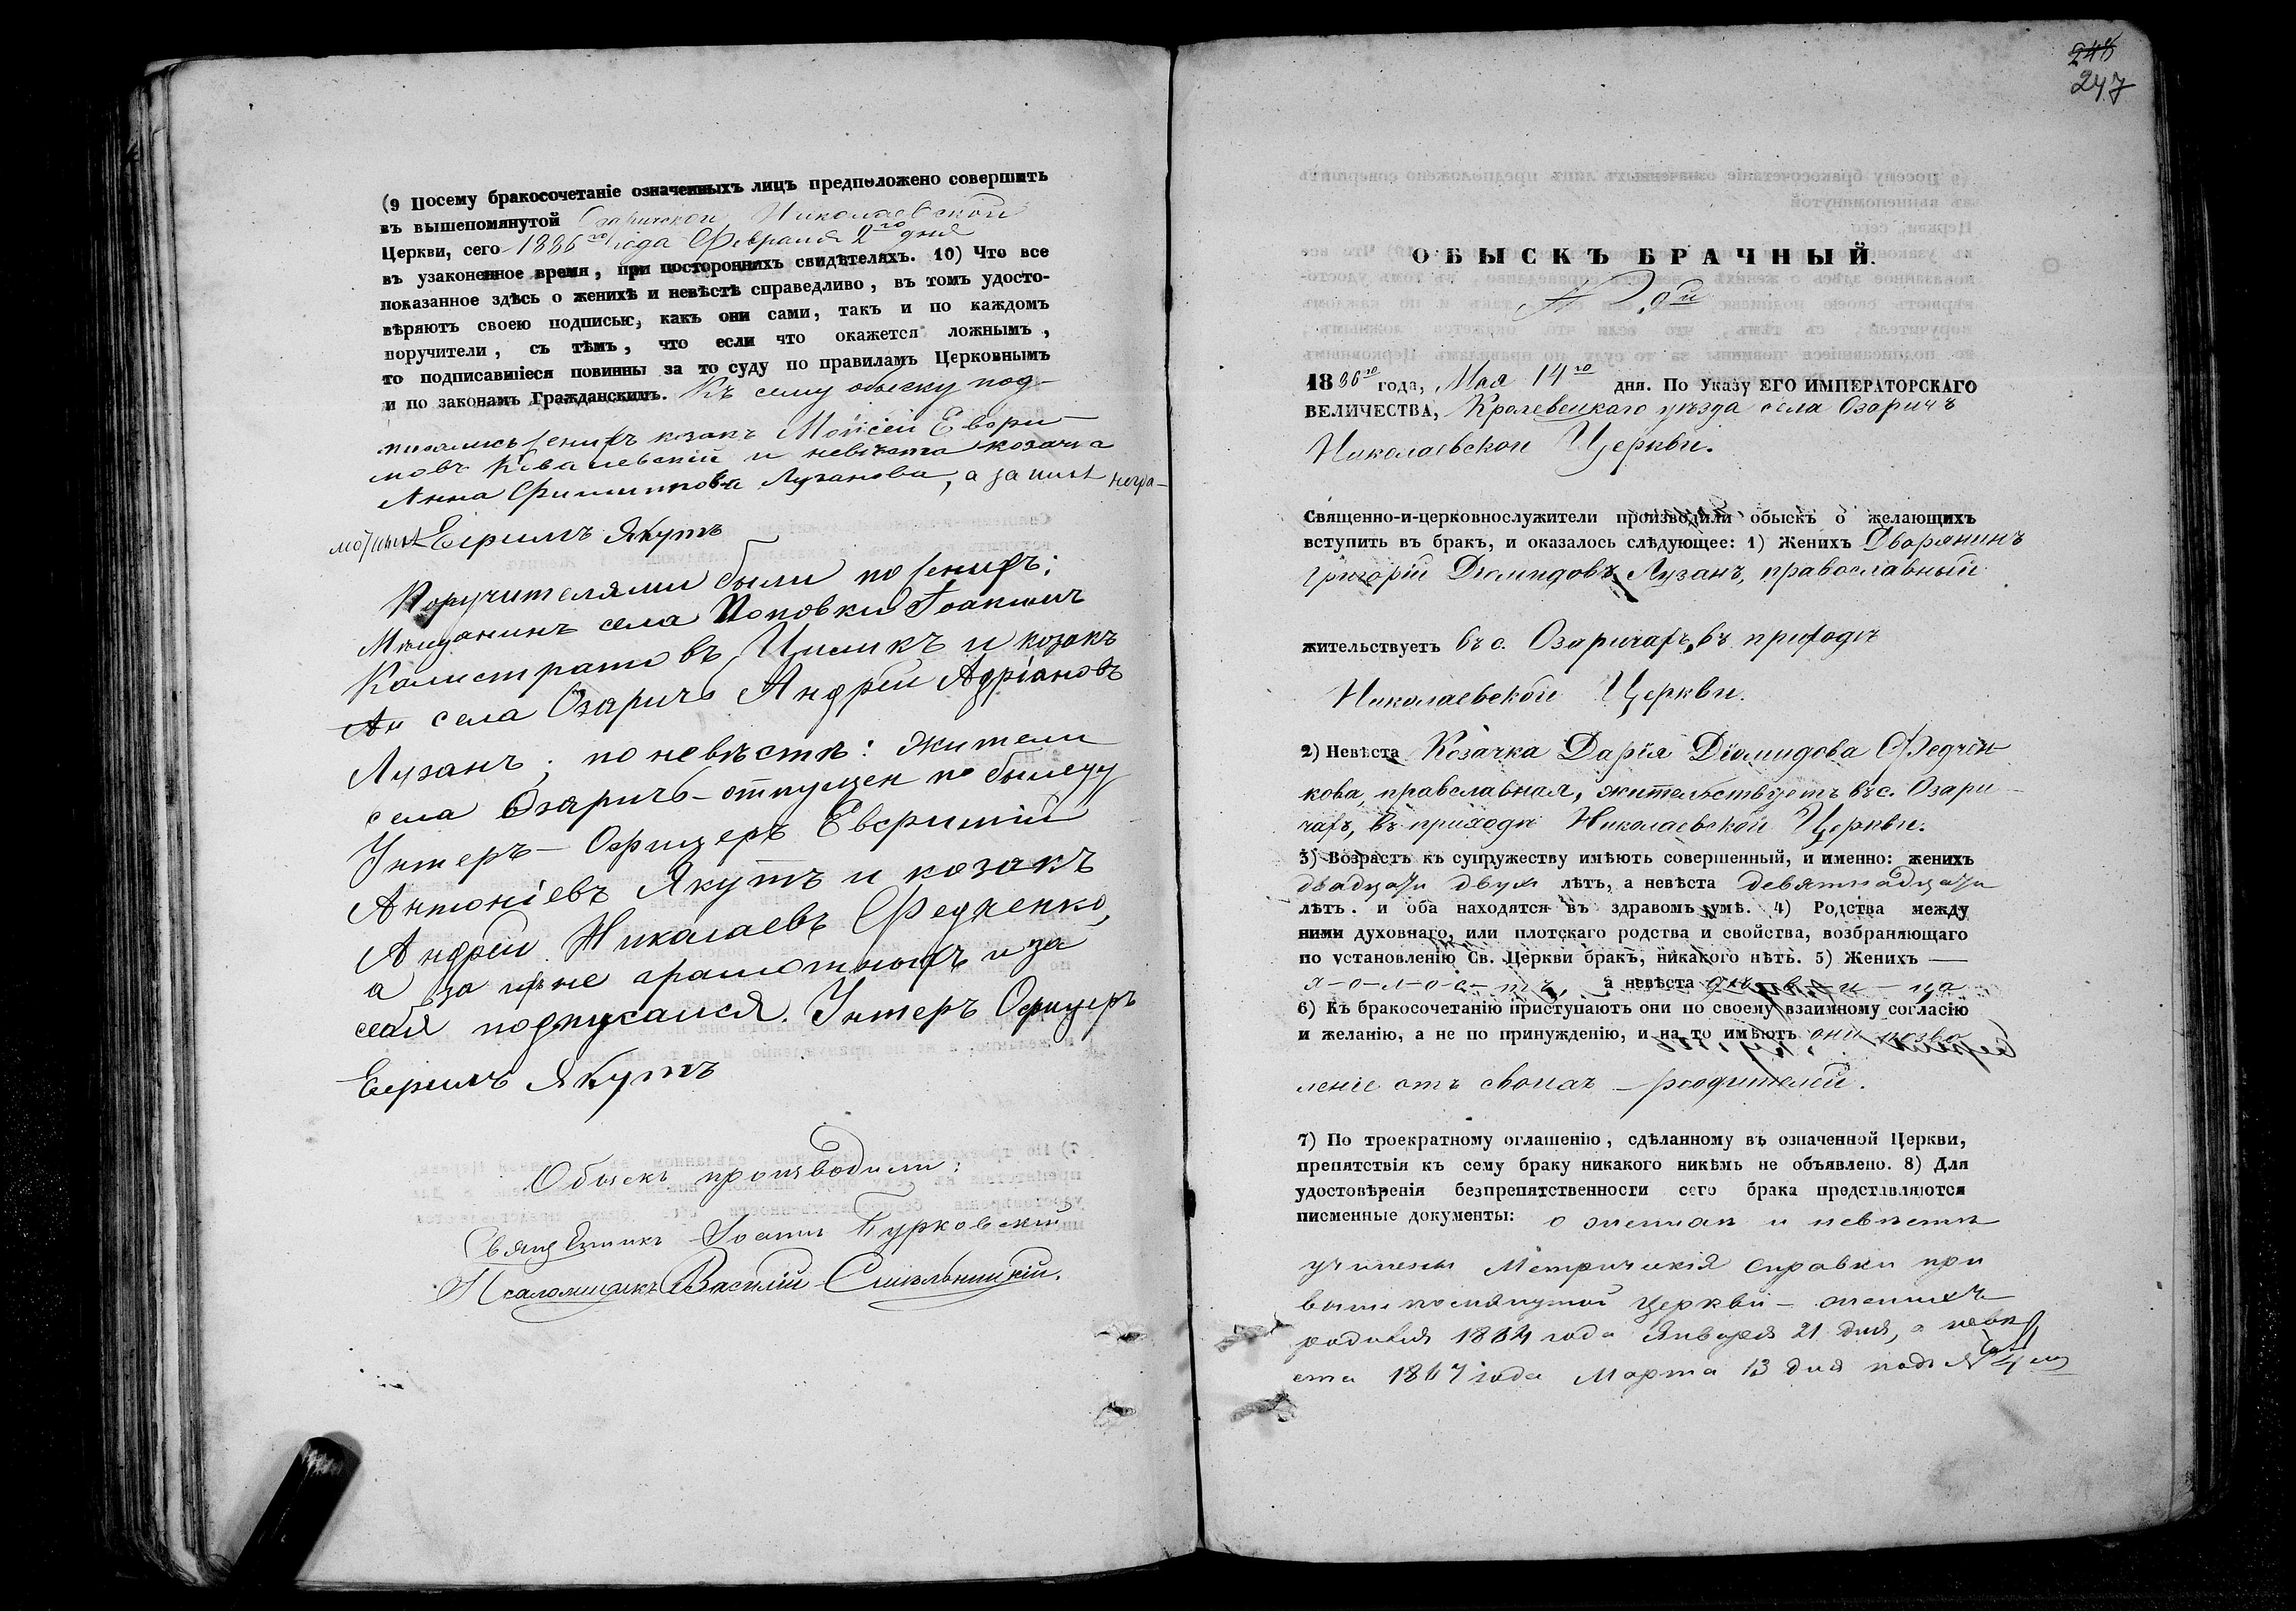 (9 Посему бракосочетаніе означенныхъ лицъ предположено совершить
въ вышепомянутой Озаричской Николаевской
Церкви, сего 1886го года Февраля 2го дня
въ узаконенное время, при постороннихъ свидѣтеляхъ. 10) Что все
показанное здѣсь о женихѣ и невѣстѣ справедливо, въ томъ удосто-
вѣряютъ своею подписью, какъ они сами, такъ и по каждомъ
поручители, съ тѣмъ, что если что окажется ложнымъ,
то подписавшіеся повинны за то суду по правиламъ Церковнымъ
и по законамъ Гражданскимъ. Къ сему обыску под-
писались женихъ козакъ Мойсей
Ковалевскій и невѣста козачка
Анна Филиппова Лузанова, а за нихъ негра-
мотныхъ Ефримъ Якутъ
Поручителями были по женихѣ:
Мѣщанинъ села Поповки Іоакимъ
Калистратовъ и козакъ
села Озаричъ Андрей Адріановъ
Лузанъ; по невѣстѣ: жители
села Озаричъ - отпущен по билету
Унтеръ-Офицеръ Евфримій
Антоніевъ Якутъ и козакъ
Андрей Николаевъ Федченко,
а за ихъ не грамотныхъ и за
себя подписался. Унтеръ Офицеръ
Ефримъ Якутъ
Обыскъ производили:
Священникъ Іоаннъ Бурковскій
Псаломщикъ Василій Синельницкій.
248
247
ОБЫСКЪ БРАЧНЫЙ.
№ 9й
1886го года, Мая 14го дня. По Указу ЕГО ИМПЕРАТОРСКАГО
ВЕЛИЧЕСТВА, Кролевецкаго уѣзда села Озаричъ
Николаевской Церкви.
Священно-и-церковнослужители производили обыскъ о желающихъ
вступить въ бракъ, и оказалось слѣдующее: 1) Женихъ Дворянинъ
Григорій Діомидовъ Лузанъ, православный
жительствуетъ въ с. Озаричахъ, въ приходѣ
Николаевской Церкви.
2) Невѣста Козачка Дарія Діомидова Федчен-
кова, православная, жительствуетъ въ с. Озари-
чахъ, въ приходѣ Николаевской Церкви.
3) Возрастъ къ супружеству имѣютъ совершенный, и именно: женихъ
двадцати двухъ лѣтъ, а невѣста девятнадцати
лѣтъ. и оба находятся въ здравомъ умѣ. 4) Родства между
ними духовнаго, или плотскаго родства и свойства, возбраняющаго
по установленію Св. Церкви бракъ, никакого нѣтъ. 5) Женихъ —
х-о-л-о-с-тъ, а невѣста дѣ-в-и-ца
6) Къ бракосочетанію приступаютъ они по своему взаимному согласію
и желанію, а не по принужденію, и на то имѣютъ они позво
леніе отъ своихъ - родителей.
7) По троекратному оглашенію, сдѣланному въ означенной Церкви,
препятствія къ сему браку никакого никѣмъ не объявлено. 8) Для
удостовѣренія безпрепятственности сего брака представляются
писменные документы: о женихѣ и невѣстѣ
учинены Метрическія справки при
вышепомянутой Церкви - женихъ
родился 1864 года Января 21 дня, а невѣ
ста 1867 года Марта 13 дня подъ № 4мъ